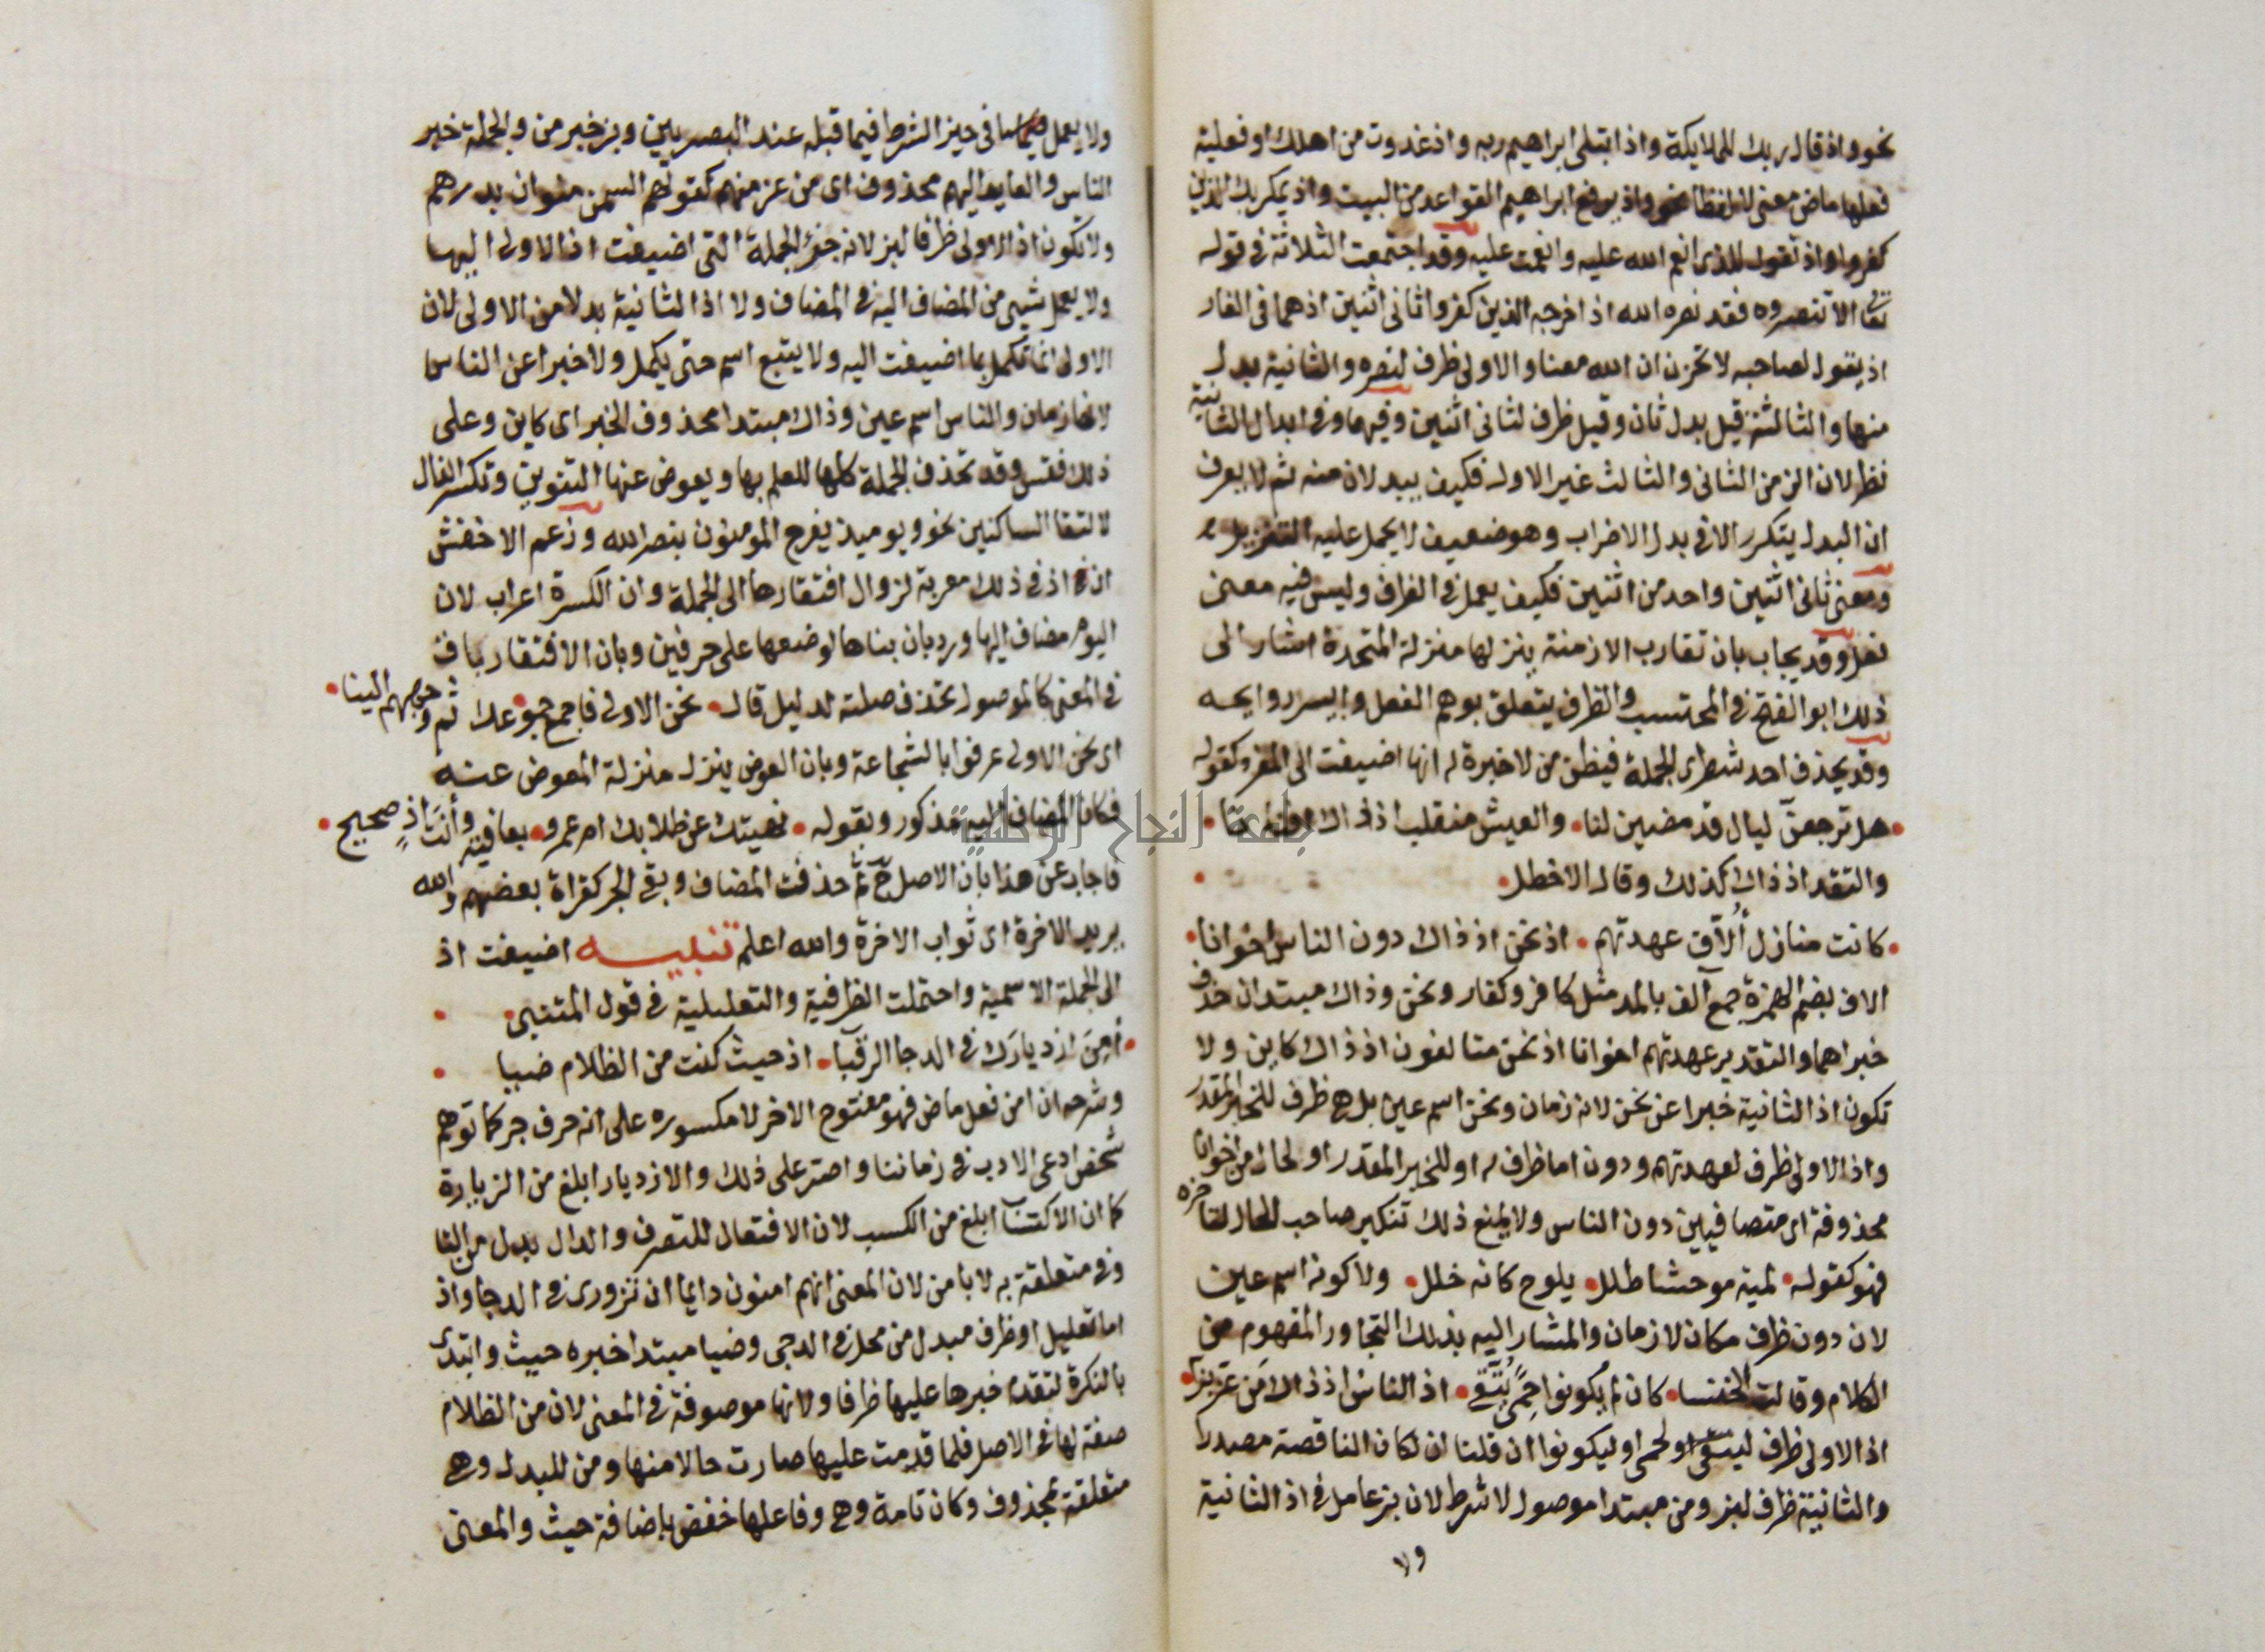 نحو واذ قال ربك للملايكة واذ ابتلى ابراهيم ربه واذ غدوت من اهلك او فعلية
فعلها ماض معنى لا لفظا نحو واذ يرفع ابراهيم القواعد من البيت واذ يمكر بك الذين
كفروا واذ تقول للذى انعم الله عليه وانعمت عليه وقد اجتمعت الثلاثة فى قوله
تعالى الا تنصروه فقد نصره الله اذ اخرجه الذين كفروا ثانى اثنين اذ هما فى الغار
اذ يقول لصاحبه لا تحزن ان الله معنا والاولى ظرف لنصره والثانية بدل
منها والثالثة قيل بدل ثان وقيل ظرف لثانى اثنين وفيهما وفى ابدال الثانية
نظر لان الزمن الثانى والثالث غير الاول فكيف يبدلان منه ثم لا يعرف
ان البدل يتكرر الا فى بدل الاضراب وهو ضعيف لا يحمل عليه التنزيل
ومعنى ثانى اثنين واحد من اثنين فكيف يعمل فى الظرف وليس فيه معنى
فعل وقد يجاب بان تقارب الازمنة ينزلها منزلة المتحدة اشار الى
ذلك ابو الفتح فى المحتسب والظرف يتعلق بوهم الفعل وايسر روايحه
وقد يحذف احد شطرى الجملة فيظن من لا خبرة له انها اضيفت الى المفرد كقوله
هل ترجعن ليال قد مضين لنا • والعيش منقلب اذ ذاك افنانا •
والتقد اذ ذاك كذلك وقال الاخطل •
• كانت منازل أُلاّف عهدتهم • اذ نحن اذ ذاك دون الناس اخوانا •
الاف بضم الهمزة جمع آلف بالمد مثل كافر وكفار ونحن وذاك مبتدان حذف
خبراهما والتقدير عهدتهم اخوانا اذ نحن متالفون اذ ذاك كاين ولا
تكون اذ الثانية خبرا عن نحن لانه زمان ونحن اسم عين بل هى ظرف للخبر المقدر
واذ الاولى ظرف لعهدتهم ودون اما ظرف له او للخبر المقدر او لحال من اخوانا
محذوفة اى متصافيين دون الناس ولا يمنع ذلك تنكير صاحب الحال لتاخره
فهو كقوله • لمية موحشا طلل • يلوح كانه خلل • ولا كونه اسم عين
لان دون ظرف مكان لا زمان والمشار اليه بذلك التجاور المفهوم من
الكلام وقالت الخنسا • كان لم يكونوا حِمًى يُتّقى • اذ الناس اذ ذاك مَن عَزّ بزا •
اذ الاولى ظرف ليتقى او لحمى او ليكونوا ان قلنا ان لكان الناقصة مصدرا
والثانية ظرف لبز ومن مبتدا موصول لا شرط لان بز عامل فى اذ الثانية
ولا
ولا يعمل ما فى حيز الشرط فيما قبله عند البصريين وبز خبر من والجملة خبر
الناس والعايد اليهم محذوف اى من عز منهم كقولهم السمن منوان بدرهم
ولا تكون اذ الاولى ظرفا لبز لانه جزؤ الجملة التى اضيفت اذ الاولى اليها
ولا يعمل شيى من المضاف اليه فى المضاف ولا اذ الثانية بدلا من الاولى لان
الاولى انما تكمل بما اضيفت اليه ولا يتبع اسم حتى يكمل ولا خبرا عن الناس
لانها زمان والناس اسم عين وذاك مبتدا محذوف الخبر اى كاين وعلى
ذلك فقس وقد تحذف الجملة كلها للعلم بها ويعوض عنها التنوين وتكسر الذال
لالتقا الساكنين نحو ويوميذ يفرح المومنون بنصر الله وزعم الاخفش
ان اذ فى ذلك معربة لزوال افتقارها الى الجملة وان الكسرة اعراب لان
اليوم مضاف اليها ورد بان بناها لوضعها على حرفين وبان الافتقار باق
فى المعنى كالموصول تحذف صلته لدليل قال • نحن الاولى فاجمع جموعك ثم وجههم الينا •
اى نحن الاولى عرفوا بالشجاعة وبان العوض ينزل منزلة المعوض عنه
فكان المضاف اليه مذكور وبقوله • نهيتك عن طلابك ام عمرو • بعافية وأنتَ اذٍ صحيح •
فاجاب عن هذا بان الاصل ح ثم حذفت المضاف وبقى الجر كقراة بعضهم والله
يريد الاخرة اى ثواب الاخرة والله اعلم تنبيه اضيفت اذ
الى الجملة الاسمية واحتملت الظرفية والتعليلية فى قول المتنبى •
• أمِنَ ازديارَك فى الدجا الرقبا • اذ حيث كنت من الظلام ضيا •
وشرحه ان امن فعل ماض فهو مفتوح الاخر لا مكسوره على انه حرف جر كما توهم
شخص ادعى الادب فى زماننا واصر على ذلك والازديار ابلغ من الزيارة
كما ان الاكتساب ابلغ من الكسب لان الافتعال للتصرف والدال بدل من التا
وفى متعلقة به لا بامن لان المعنى انهم امنون دايما ان تزورى فى الدجا واذ
اما تعليل او ظرف مبدل من محل فى الدجى وضيا مبتدا خبره حيث وابتدى
بالنكرة لتقدم خبرها عليها ظرفا ولانها موصوفة فى المعنى لان من الظلام
صفة لها فى الاصل فلما قدمت عليها صارت حالا منها ومن للبدل وهى
متعلقة بمحذوف وكان تامة وهى وفاعلها خفض باضافة حيث والمعنى
جامعة النجاح الوطنية